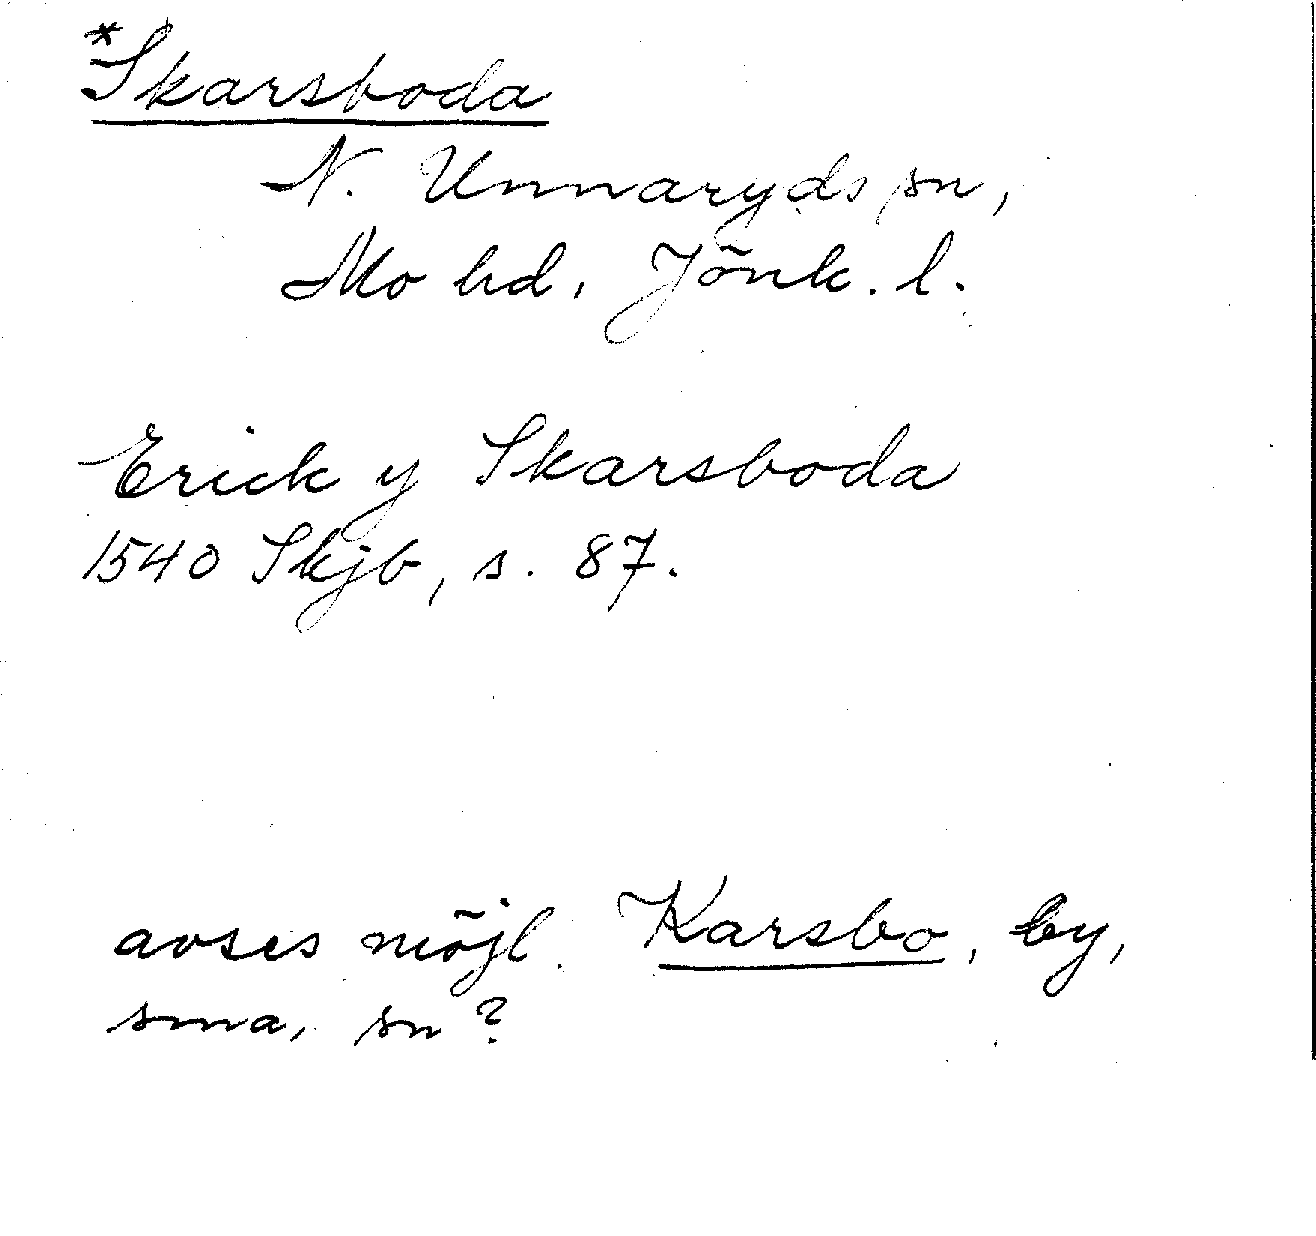 *Skarsboda
N. Unnaryds sn,
Mo hd, Jönk. l.
Erick y Skarsboda
1540 Skjb, s. 87.
avses möjl. Karsbo, by,
sma, sn?